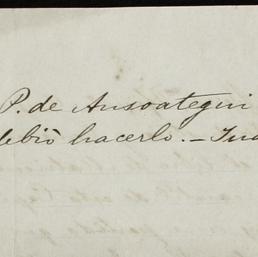 P. de Ansoategui
debiò hacerlo. –